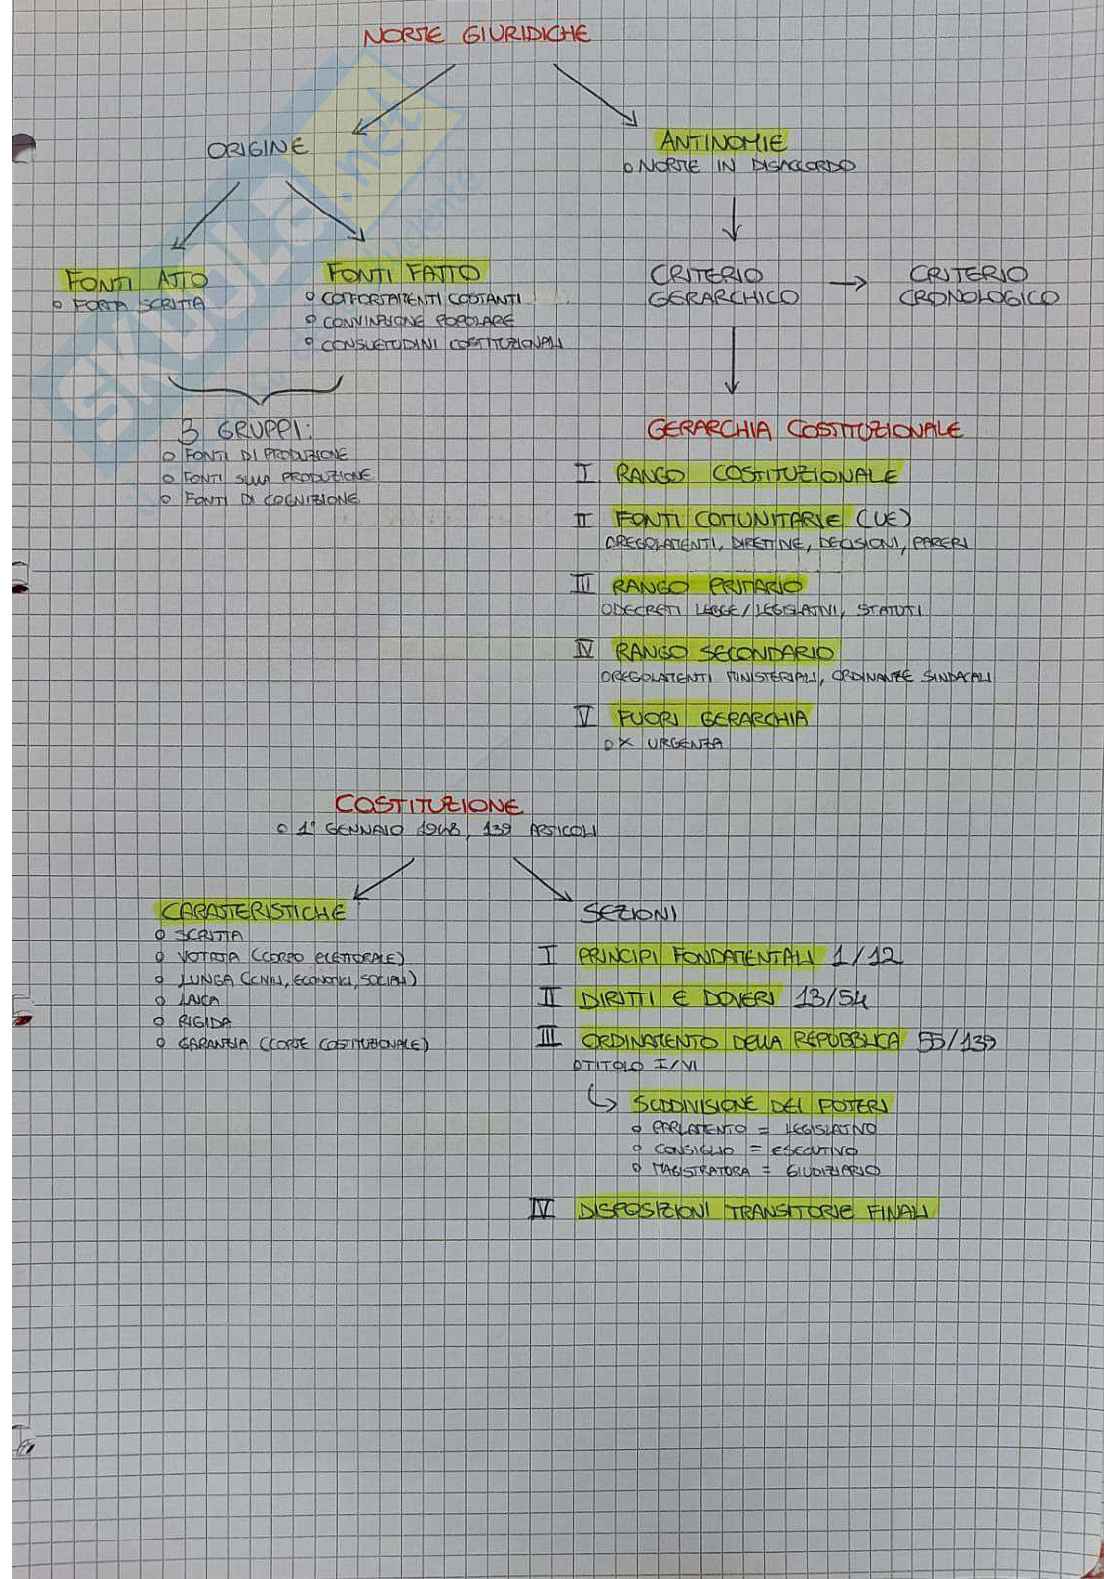 NORME GIURIDICHE
ORIGINE
ANTINOMIE
o NORME IN DISACCORDO
FONTI ATTO
o FORMA SCRITTA
FONTI FATTO
o COMPORTAMENTI COSTANTI
o CONVINZIONE POPOLARE
o CONSUETUDINI COSTITUZIONALI
CRITERIO
GERARCHICO
CRITERIO
CRONOLOGICO
3 GRUPPI:
o FONTI DI PRODUZIONE
o FONTI SULLA PRODUZIONE
o FONTI DI COGNIZIONE
GERARCHIA COSTITUZIONALE
I RANGO COSTITUZIONALE
II FONTI COMUNITARIE (UE)
o REGOLAMENTI, DIRETTIVE, DECISIONI, PARERI
III RANGO PRIMARIO
o DECRETI LEGGE/LEGISLATIVI, STATUTI
IV RANGO SECONDARIO
o REGOLAMENTI MINISTERIALI, ORDINANZE SINDACALI
V FUORI GERARCHIA
o X URGENZA
COSTITUZIONE
o 1° GENNAIO 1948, 139 ARTICOLI
CARATTERISTICHE
o SCRITTA
o VOTATA (CORPO ELETTORALE)
o LUNGA (CIVILI, ECONOMICI, SOCIALI)
o LAICA
o RIGIDA
o GARANZIA (CORTE COSTITUZIONALE)
SEZIONI
I PRINCIPI FONDAMENTALI 1/12
II DIRITTI E DOVERI 13/54
III ORDINAMENTO DELLA REPUBBLICA 55/139
o TITOLO I/VI
SUDDIVISIONE DEI POTERI
o PARLAMENTO = LEGISLATIVO
o CONSIGLIO = ESECUTIVO
o MAGISTRATURA = GIUDIZIARIO
IV DISPOSIZIONI TRANSITORIE FINALI
SKUOLA.net